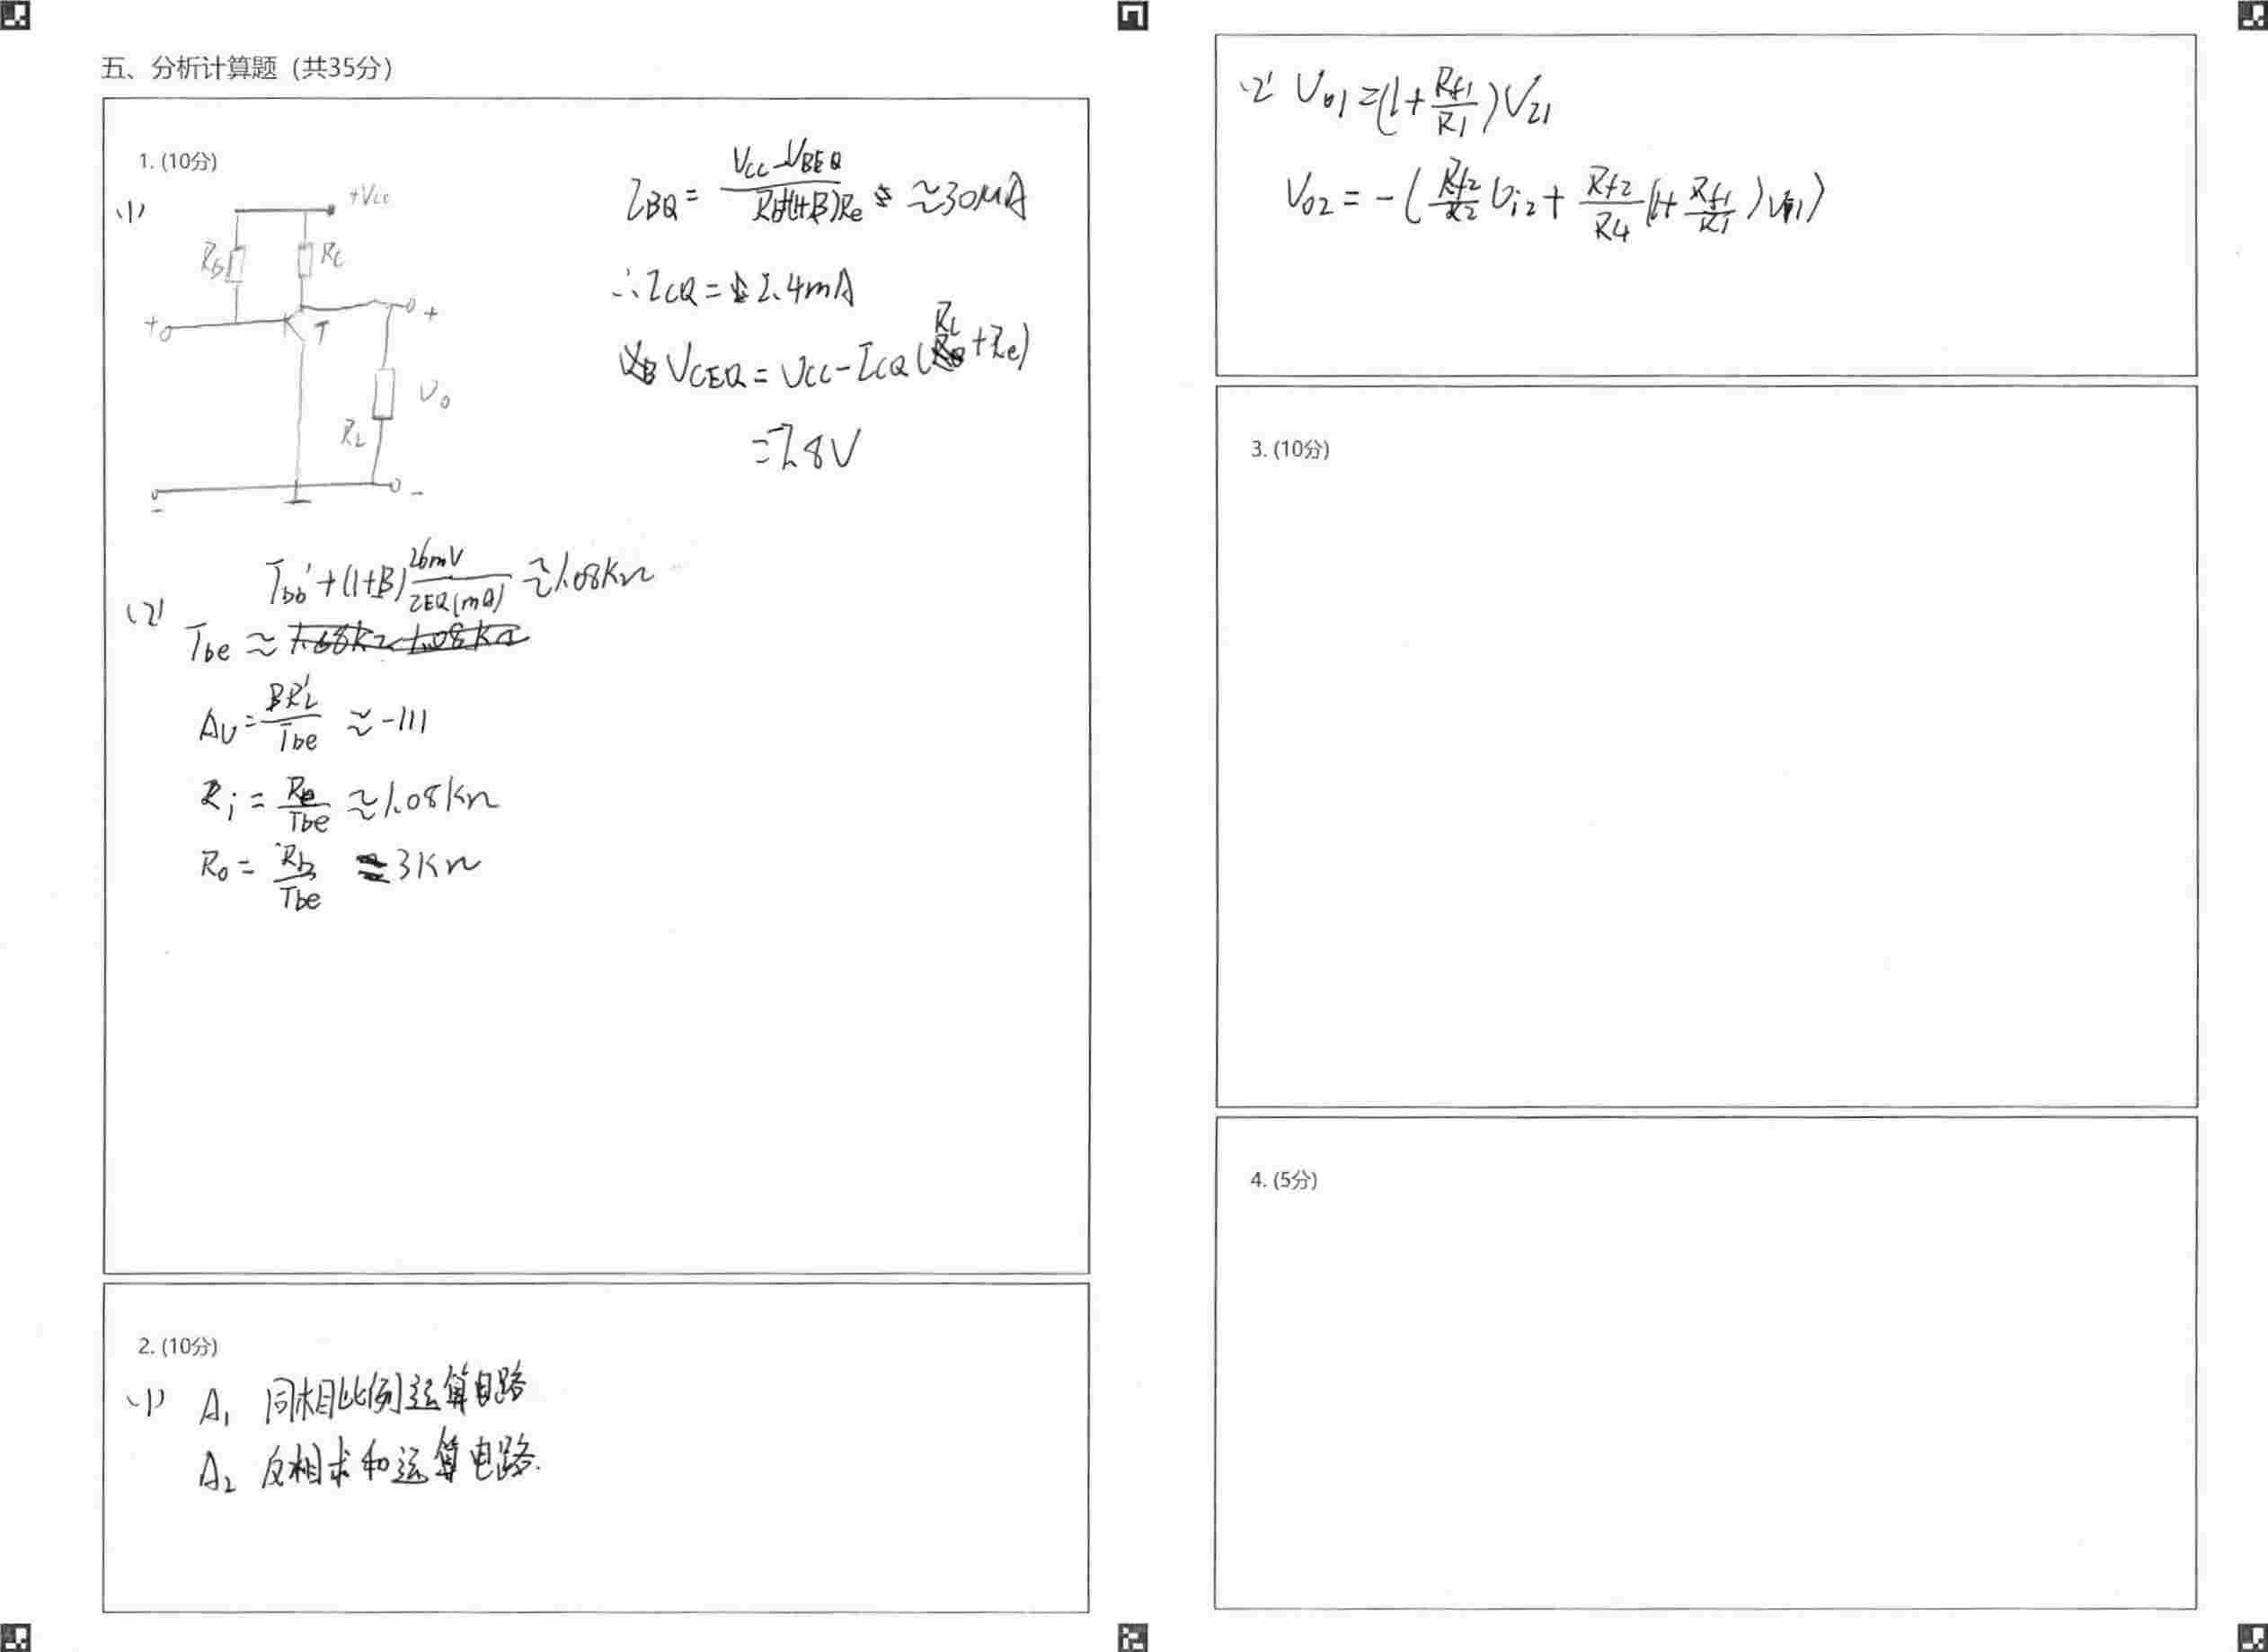 五、分析计算题（共35分）
1. (10分)
(1)
+Vcc
Rb
Rc
+
T
+
Uo
RL
-
-
IBQ = (VCC - VBEQ) / (Rb+(1+β)Re) ≈30μA
∴ICQ = 2.4mA
VCEQ = VCC - ICQ (Rc + Re)
=7.8V
(2)
rbb' + (1+β) 26mV / IEQ(mA) ≈1.08KΩ
rbe ≈
AU = βR'L / rbe ≈ -111
Ri = / rbe ≈1.08KΩ
Ro = Rb / rbe = 3KΩ
2. (10分)
(1) A1 同相比例运算电路
A2 反相求和运算电路.
(2) Uo1 =(1+ Rf1/R1 )VI1
Vo2 = - ( Rf2/R2 Ui2 + Rf2/R4 (1+ Rf1/R1 ) )
3. (10分)
4. (5分)